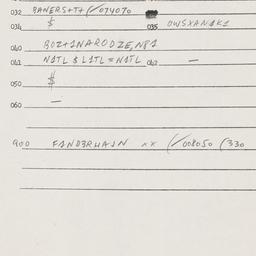 032 BANERS+T+(/074070
034 $ 035 OWSXANAK1
040 BOZ+1NARODZE,N81
041 N1TL $ L1TL=N1TL 042 —
050 $
060 —
900 F1ND3RHAJN xx (/008050 (330